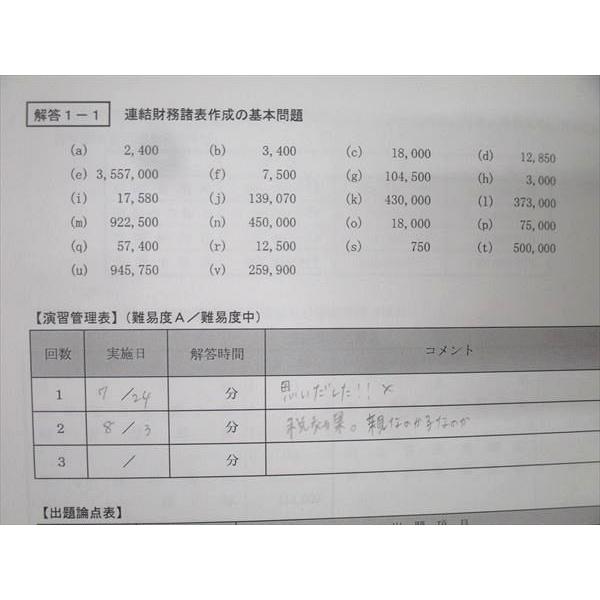 解答1－1 連結財務諸表作成の基本問題
(a) 2,400 (b) 3,400 (c) 18,000 (d) 12,850
(e) 3,557,000 (f) 7,500 (g) 104,500 (h) 3,000
(i) 17,580 (j) 139,070 (k) 430,000 (l) 373,000
(m) 922,500 (n) 450,000 (o) 18,000 (p) 75,000
(q) 57,400 (r) 12,500 (s) 750 (t) 500,000
(u) 945,750 (v) 259,900
【演習管理表】（難易度A／難易度中）
回数 実施日 解答時間 コメント
1 7/24 分 思いだした!! ×
2 8/3 分 税効果。親なのか子なのか
3 / 分
【出題論点表】
出題項目